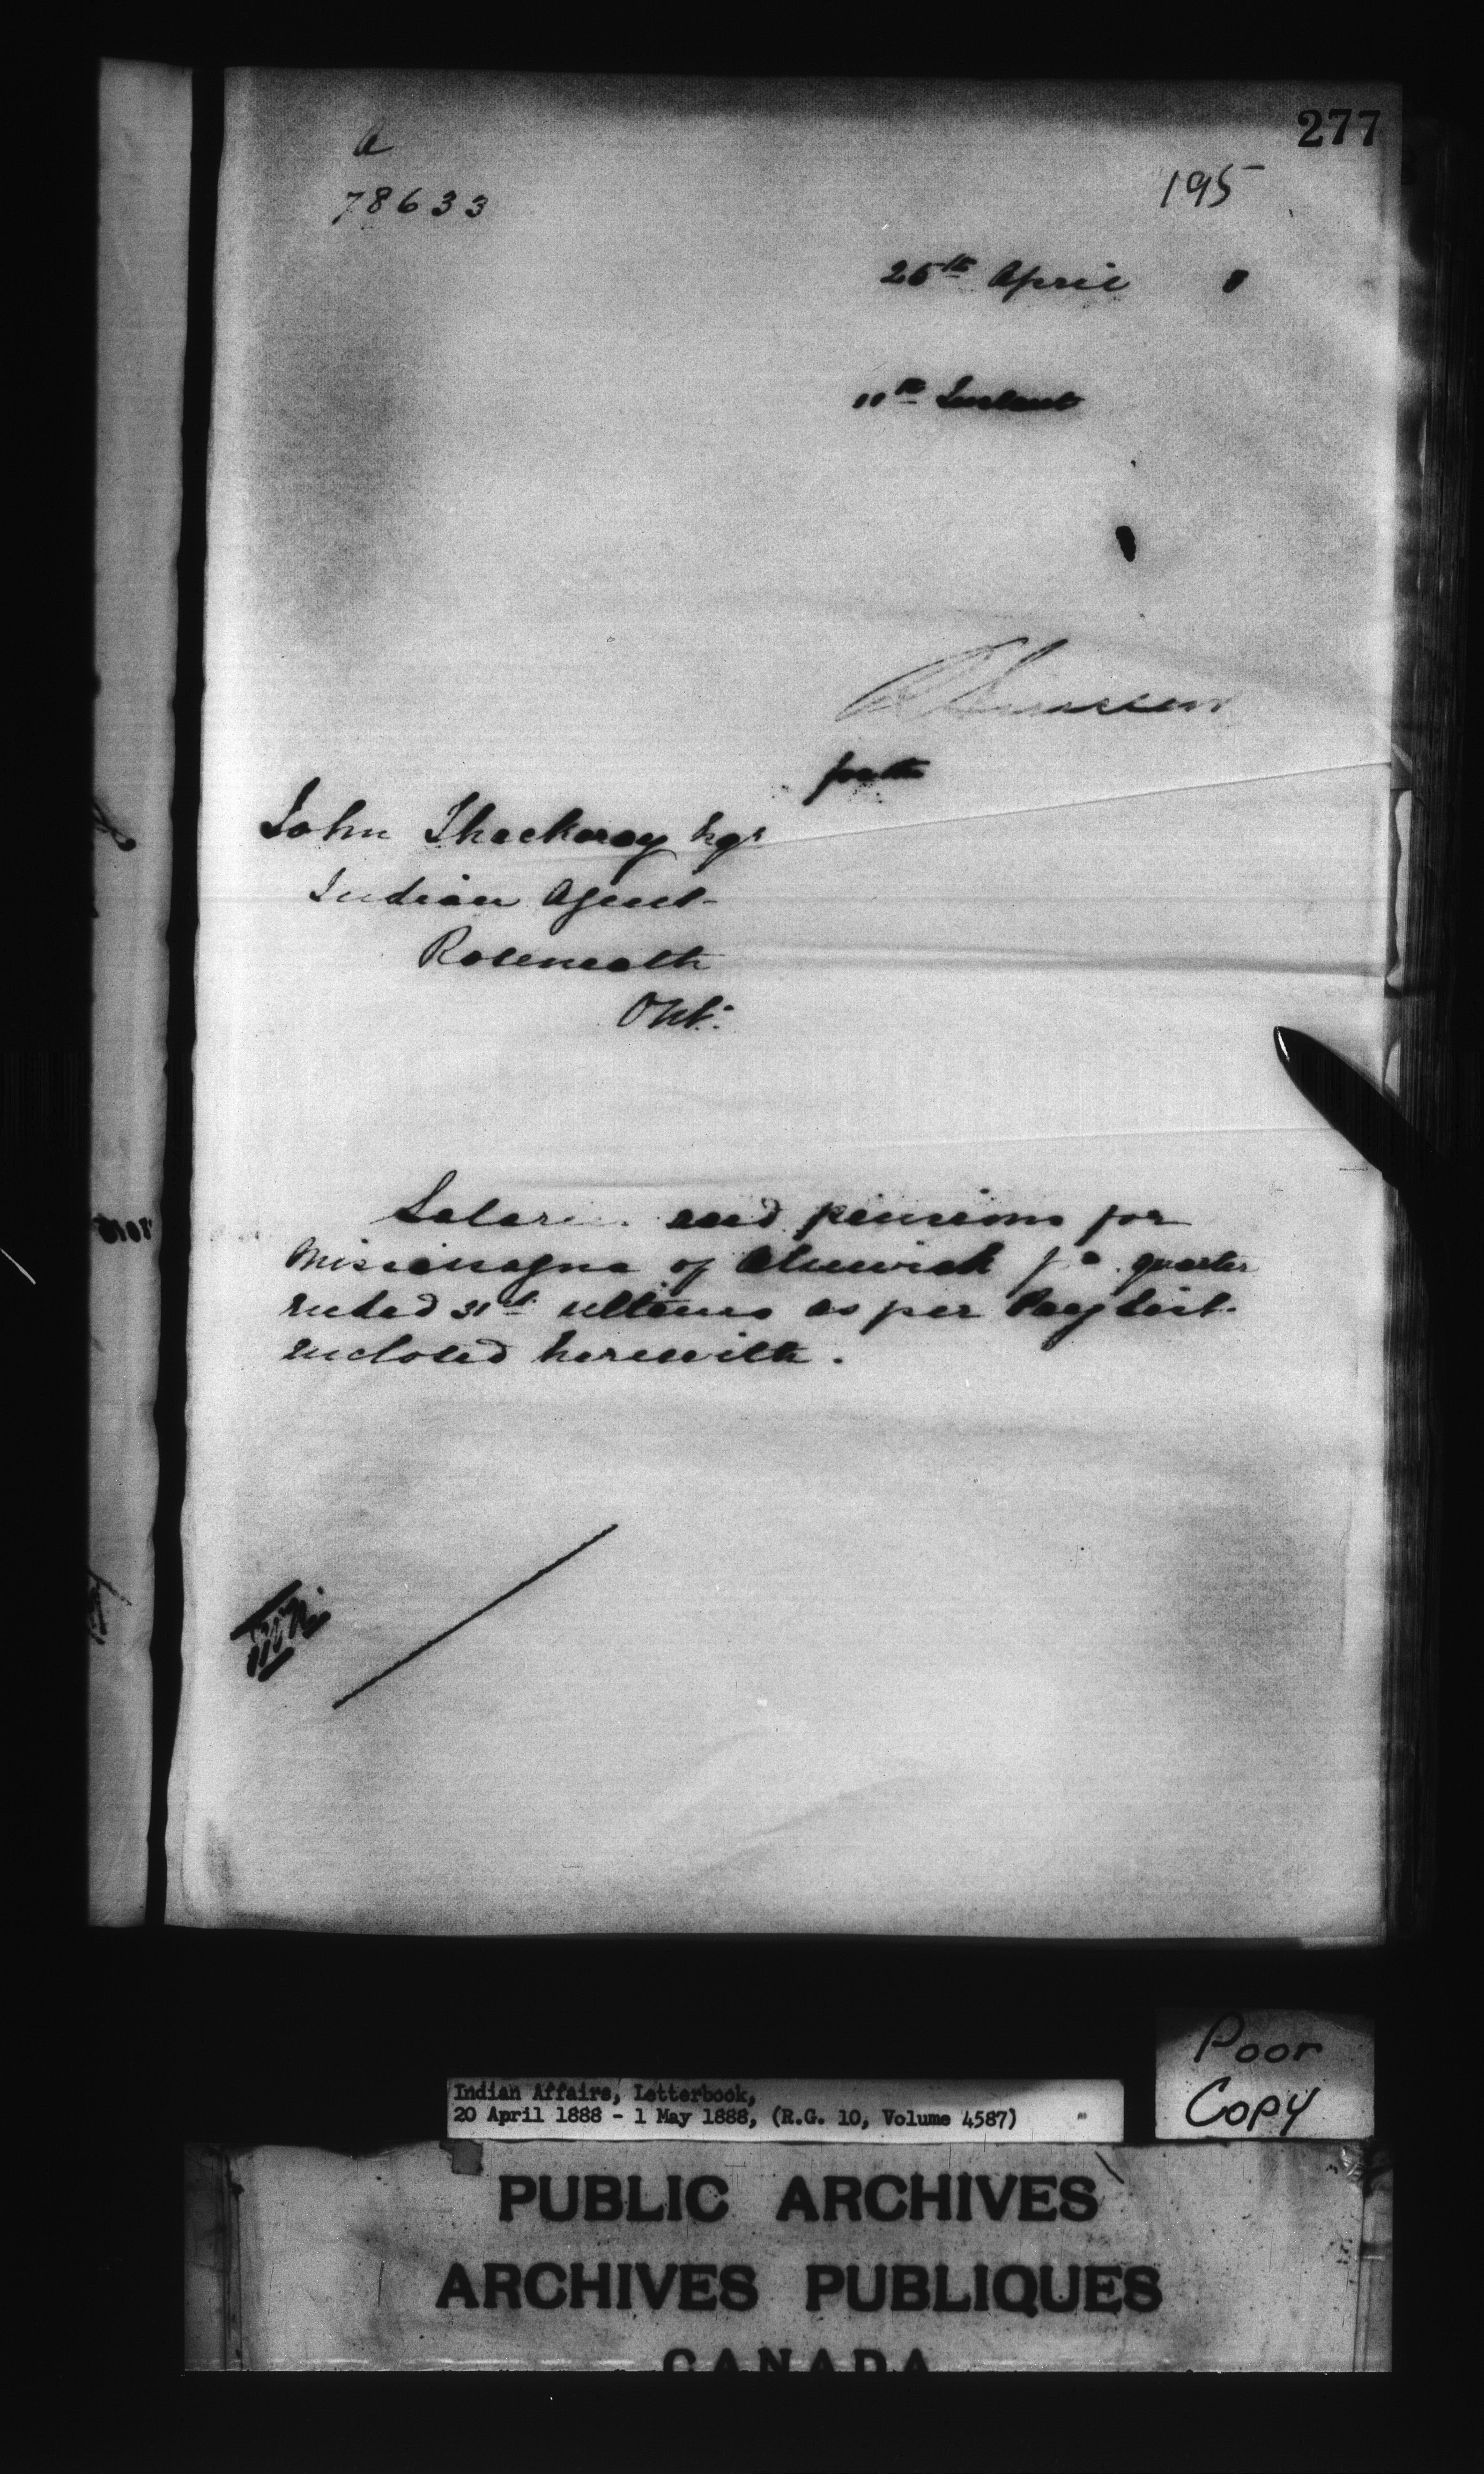 277
a
78633
195
25th April 8
11th Instant
John Thackeray Esqr
Indian Agent
Roseneath
Ont.
Salaries and pensions for
Mississagua of Alnwick for quarter
ended 31st ultimo as per Paylist
enclosed herewith.
Poor
Copy
Indian Affairs, Letterbook,
20 April 1888 - 1 May 1888, (R.G. 10, Volume 4587)
PUBLIC ARCHIVES
ARCHIVES PUBLIQUES
CANADA